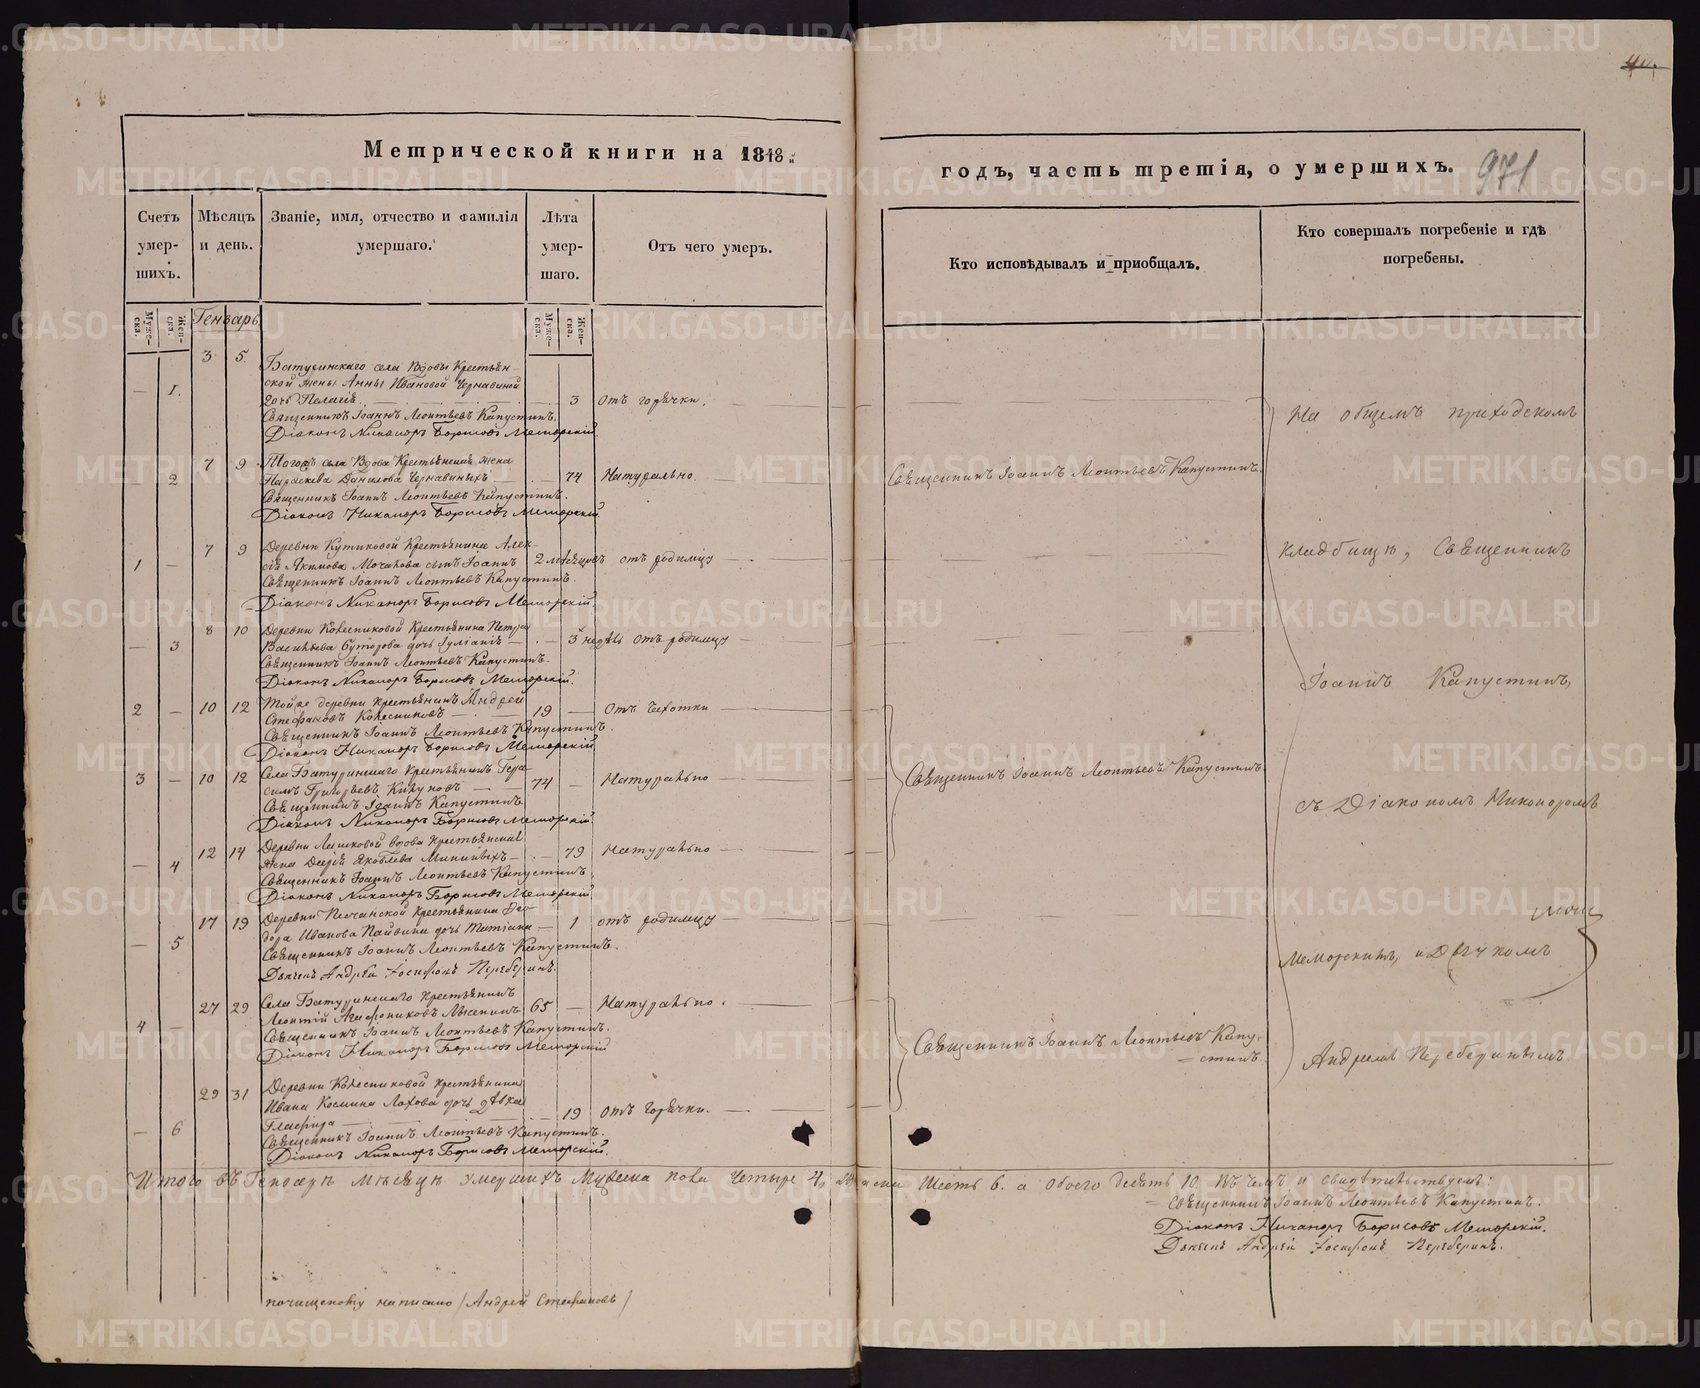 Метрической книги на 1848й
годъ, часть третія, о умершихъ.
971
Счетъ умершихъ.
Мѣсяцъ и день.
Званіе, имя, отчество и фамилія умершаго.
Лѣта умершаго.
Отъ чего умеръ.
Кто исповѣдывалъ и пріобщалъ.
Кто совершалъ погребеніе и гдѣ погребены.
Муже-ска.
Жен-ска.
Генварь
Муже-ска.
Жен-ска.
3 5
Батуринскаго села Вдовы Крестьян-
1. ской жены Анны Ивановой Чернавиной
дочь Пелагія 3 отъ горячки.
Священникъ Іоаннъ Леонтьевъ Капустинъ.
Діаконъ Никаноръ Борисовъ Меморскій.
7 9 Тогожъ села Вдова Крестьянская жена
2 Параскева Данилова Чернавиныхъ 74 Натурально.
Священникъ Іоаннъ Леонтьевъ Капустинъ.
Діаконъ Никаноръ Борисовъ Меморскій.
7 9 Деревни Кутиковой Крестьянина Алек-
1 сія Якимова Мочалова сынъ Іоаннъ 2 мѣсяцовъ отъ родимцу
Священникъ Іоаннъ Леонтьевъ Капустинъ.
Діаконъ Никаноръ Борисовъ Меморскій.
8 10 Деревни Колесниковой Крестьянина Петра
3 Васильева Буторова дочь Іуліанія 3 недѣль отъ родимцу
Священникъ Іоаннъ Леонтьевъ Капустинъ.
Діаконъ Никаноръ Борисовъ Меморскій.
2 10 12 Тойже деревни крестьянинъ Андрей
Стефановъ Колесниковъ 19 Отъ чахотки
Священникъ Іоаннъ Леонтьевъ Капустинъ.
Діаконъ Никаноръ Борисовъ Меморскій.
3 10 12 Села Батуринскаго Крестьянинъ Гера-
симъ Григорьевъ 74 Натурально
Священникъ Іоаннъ Капустинъ
Діаконъ Никаноръ Борисовъ Меморскій.
12 14 Деревни вдова Крестьянская
4 жена Дарія Яковлева 79 Натурально
Священникъ Іоаннъ Леонтьевъ Капустинъ
Діаконъ Никаноръ Борисовъ Меморскій
17 19 Деревни Песчанской крестьянина Фео-
5 дора Иванова Пайвина дочь Татіана 1 отъ родимцу
Священникъ Іоаннъ Леонтьевъ Капустинъ.
Дьячекъ Андрей Іосифовъ Переберинъ.
27 29 Села Батуринскаго Крестьянинъ
4 Леонтій Агафониковъ 65 Натурально.
Священникъ Іоаннъ Леонтьевъ Капустинъ.
Діаконъ Никаноръ Борисовъ Меморскій
29 31 Деревни Колесниковой крестьянина
Ивана Космина Лахова дочь дѣвка 19 отъ Горячки.
6 Глафира
Священникъ Іоаннъ Леонтьевъ Капустинъ.
Діаконъ Никаноръ Борисовъ Меморскій.
Священникъ Іоаннъ Леонтьевъ Капустинъ.
Священникъ Іоаннъ Леонтьевъ Капустинъ.
Священникъ Іоаннъ Леонтьевъ Капу-
стинъ.
На общемъ приходскомъ
кладбищѣ, Священникъ
Іоаннъ Капустинъ,
съ Діакономъ Никаноромъ
Меморскимъ, и Дьячкомъ
Андреемъ Переберинымъ.
Итого въ Генварѣ мѣсяцѣ умершихъ Мужеска пола Четыре 4, Женска Шесть 6. а обоего Десять 10. Въ чемъ и свидѣтельствуемъ:
Священникъ Іоаннъ Леонтьевъ Капустинъ.
Діаконъ Никаноръ Борисовъ Меморскій.
Дьячекъ Андрей Іосифовъ Переберинъ.
почищеному написано (Андрей Стефановъ)
METRIKI.GASO-URAL.RU